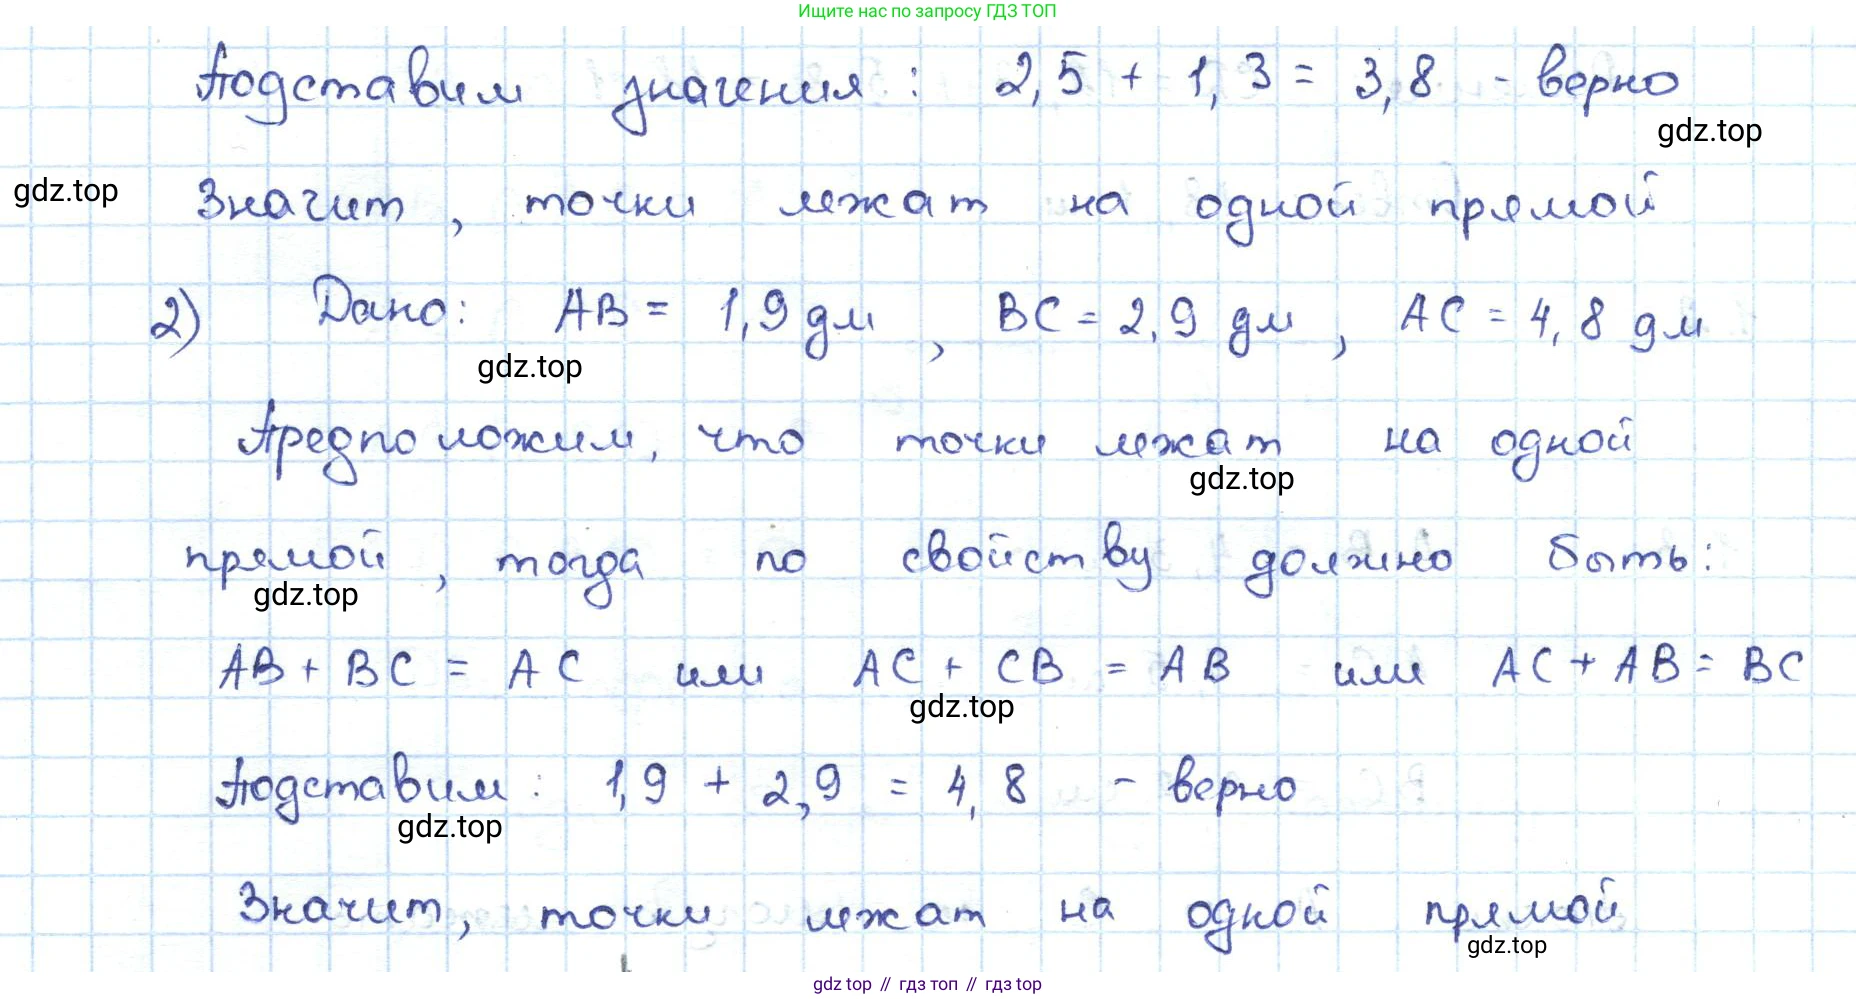 Ищите нас по запросу ГДЗ ТОП
Подставим значения : 2,5 + 1,3 = 3,8 - верно
gdz.top
gdz.top
Значит, точки лежат на одной прямой
2) Дано: AB = 1,9 дм, BC = 2,9 дм, AC = 4,8 дм
gdz.top
Предположим, что точки лежат на одной
gdz.top
прямой, тогда по свойству должно быть:
gdz.top
AB + BC = AC или AC + CB = AB или AC + AB = BC
gdz.top
Подставим: 1,9 + 2,9 = 4,8 - верно
gdz.top
Значит, точки лежат на одной прямой
gdz.top
gdz top // гдз топ // гдз top